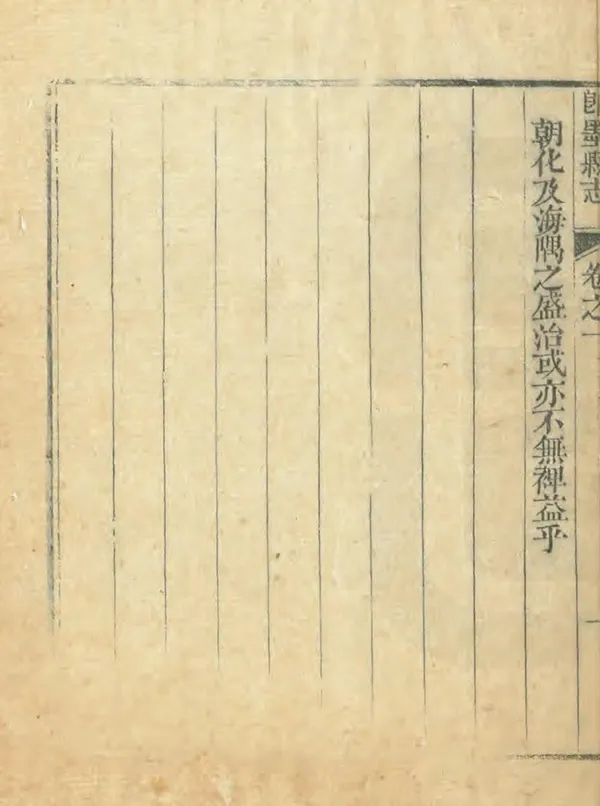 即墨縣志 卷之一 一
朝化及海隅之盛治或亦不無裨益乎